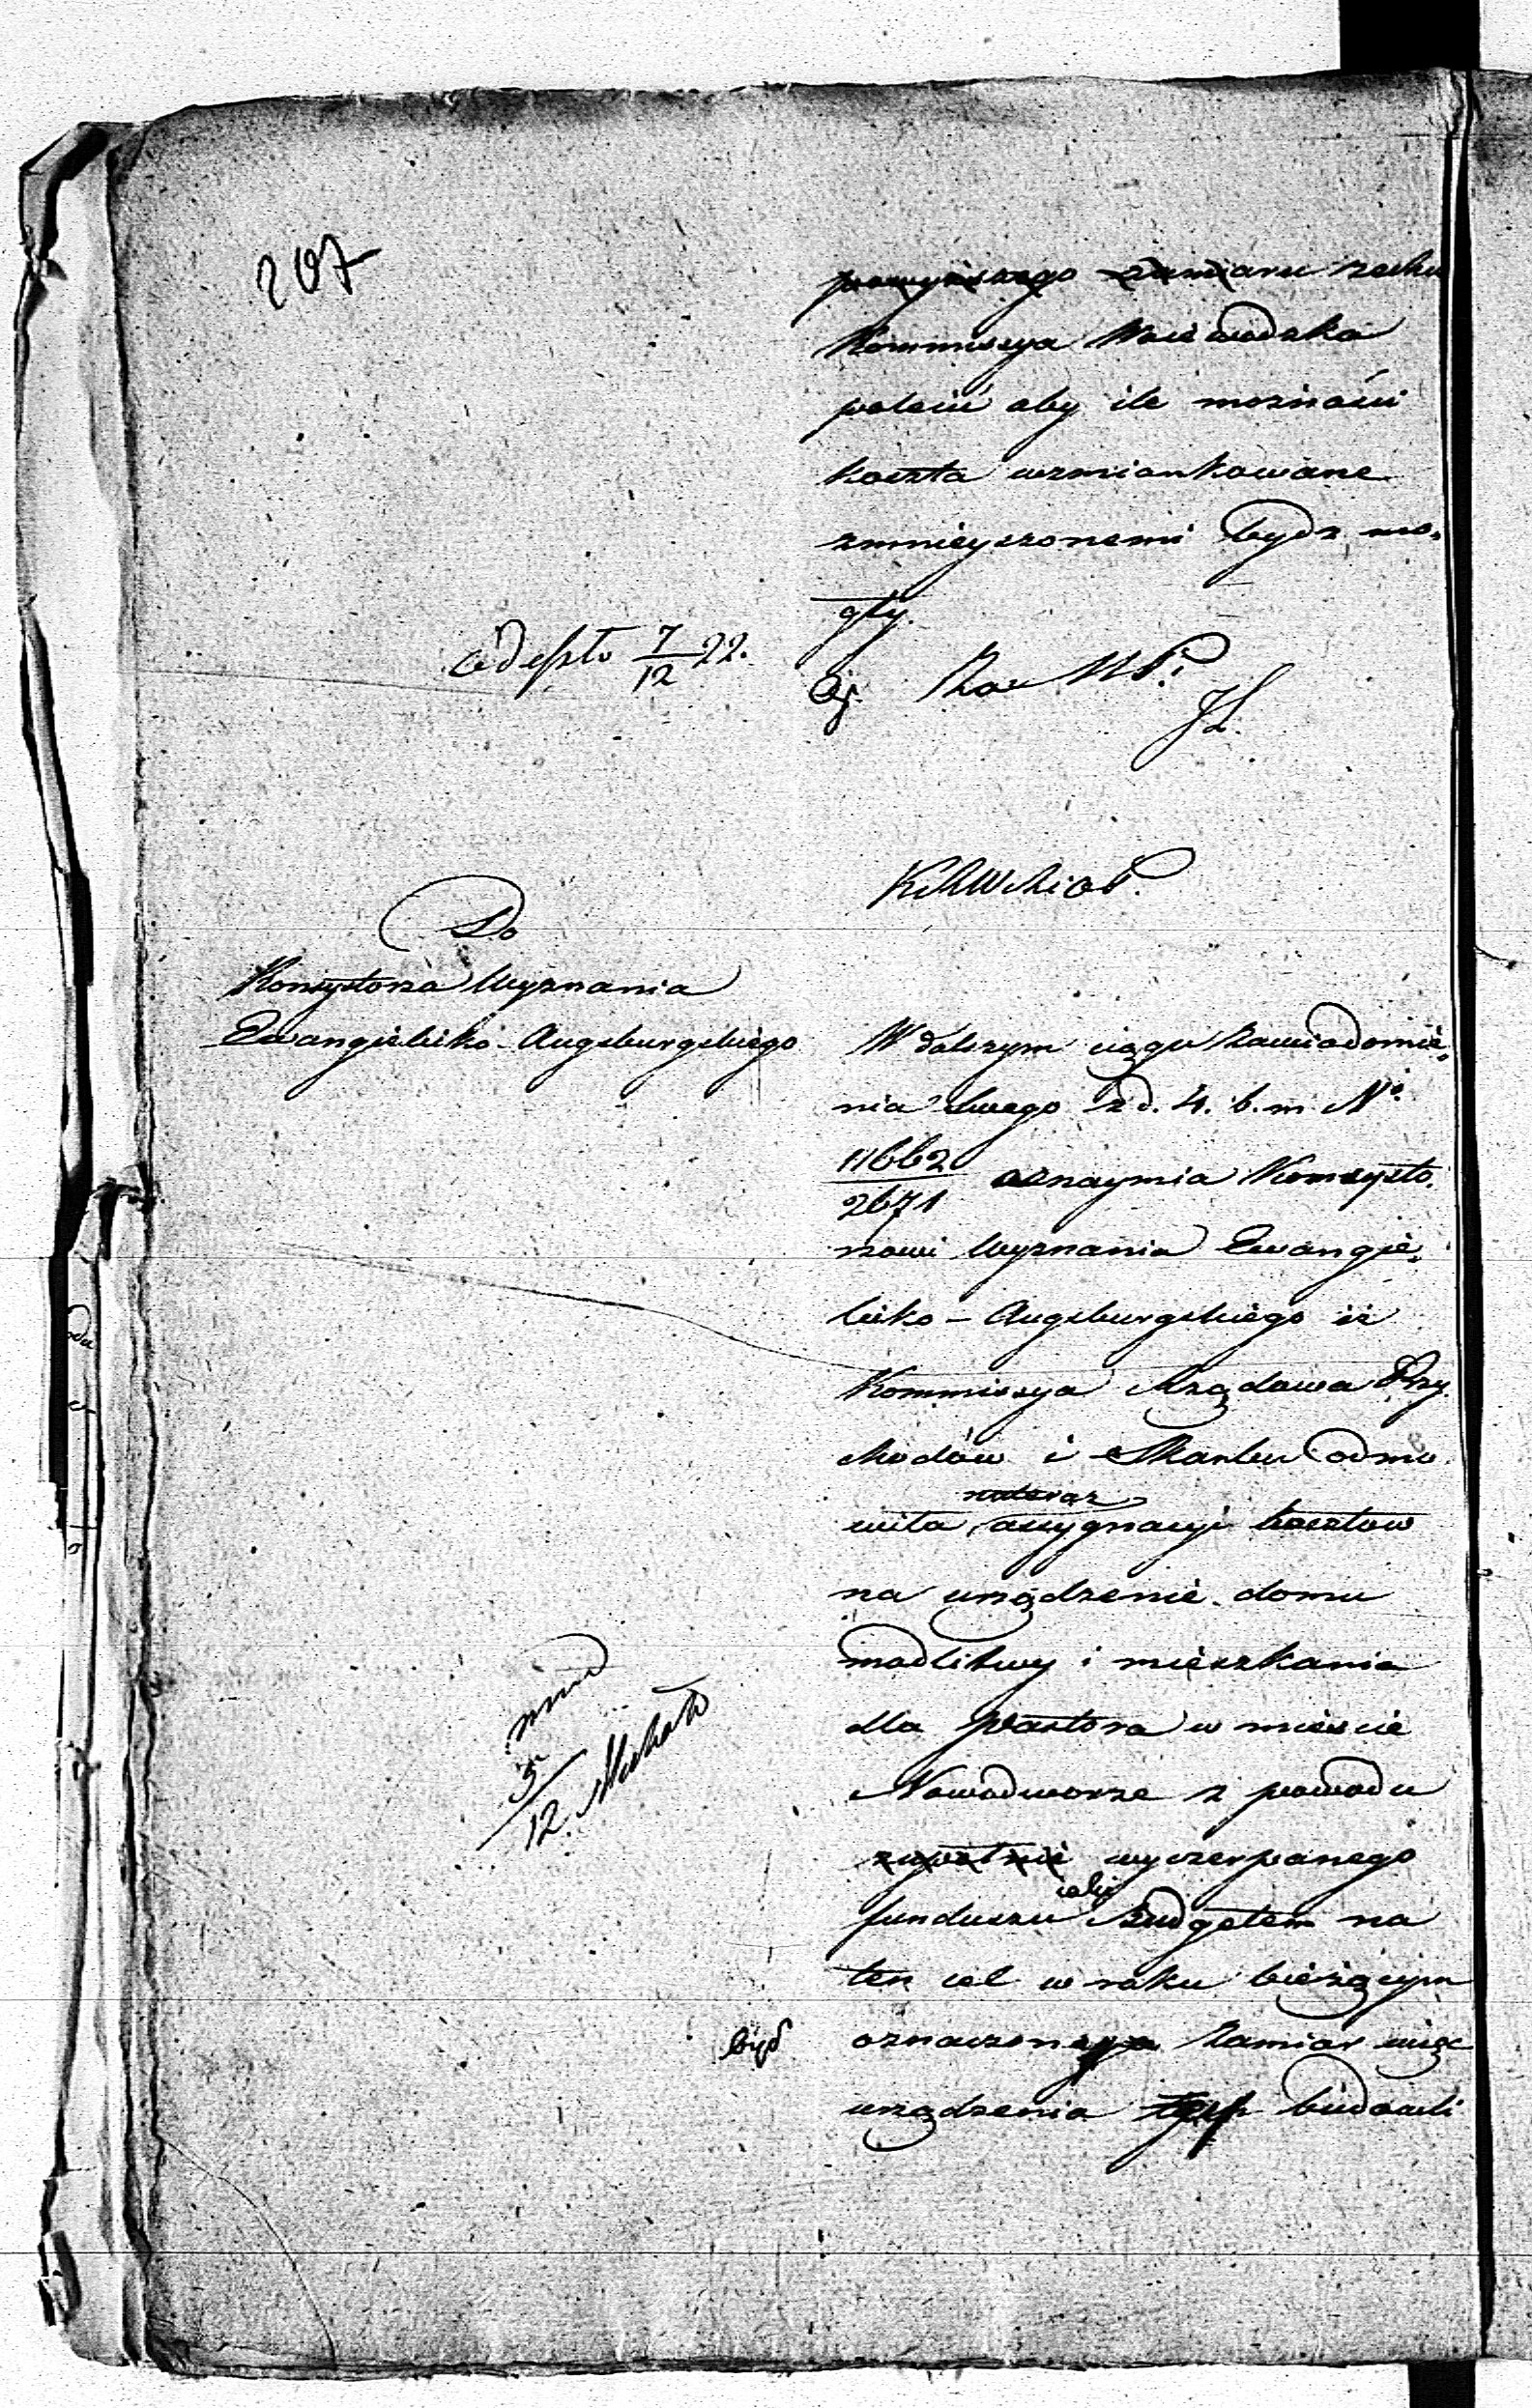 207
powyższego zamiaru zechce
Kommissya Woiewodzka
polecić aby ile możności
koszta wzmiankowane
zmnieyszonemi bydź mo„
gły.
odeszło 7/12 22.
JL.
KRWRiOP.
Do
Konsystorza Wyznania
Ewangielicko-Augsburgskiego
W dalszym ciągu zawiadomie„
nia swego z d. 4. b. m. No.
11662/2671 oznaymia Konsysto„
rzowi Wyznania Ewangie„
licko-Augsburgskiego iż
Kommissya Rządowa Przy
chodów i Skarbu odmó
nateraz
wiła assygnacyi kosztów
na urządzenie domu
modlitwy i mieszkania
dla Pastora w mieście
5/12
Nowodworze z powodu
zupełnie wyczerpanego
iaki
funduszu Budgetem na
ten cel w roku bieżącym
był oznaczonego Zamiar więc
urządzenia tych budowli